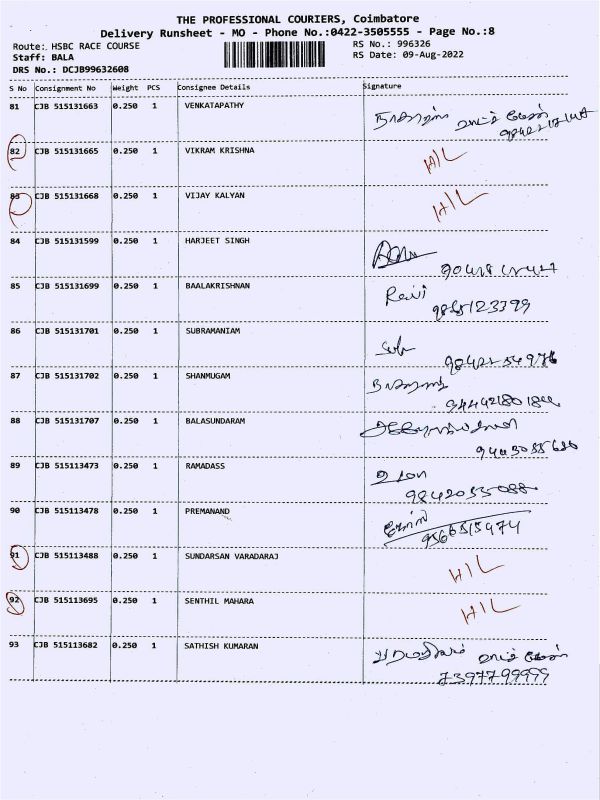 THE PROFESSIONAL COURIERS, Coimbatore
Delivery Runsheet - MO - Phone No.:0422-3505555 - Page No.:8
Route: HSBC RACE COURSE
RS No.: 996326
Staff: BALA
RS Date: 09-Aug-2022
DRS No.: DCJB99632608
S No Consignment No Weight PCS Consignee Details Signature
81 CJB 515131663 0.250 1 VENKATAPATHY
82 CJB 515131665 0.250 1 VIKRAM KRISHNA H/L
83 CJB 515131668 0.250 1 VIJAY KALYAN H/L
84 CJB 515131599 0.250 1 HARJEET SINGH
85 CJB 515131699 0.250 1 BAALAKRISHNAN Ravi
86 CJB 515131701 0.250 1 SUBRAMANIAM
87 CJB 515131702 0.250 1 SHANMUGAM
88 CJB 515131707 0.250 1 BALASUNDARAM
89 CJB 515113473 0.250 1 RAMADASS
9842055088
90 CJB 515113478 0.250 1 PREMANAND
9566515974
91 CJB 515113488 0.250 1 SUNDARSAN VARADARAJ H/L
92 CJB 515113695 0.250 1 SENTHIL MAHARA H/L
93 CJB 515113682 0.250 1 SATHISH KUMARAN
7397799999